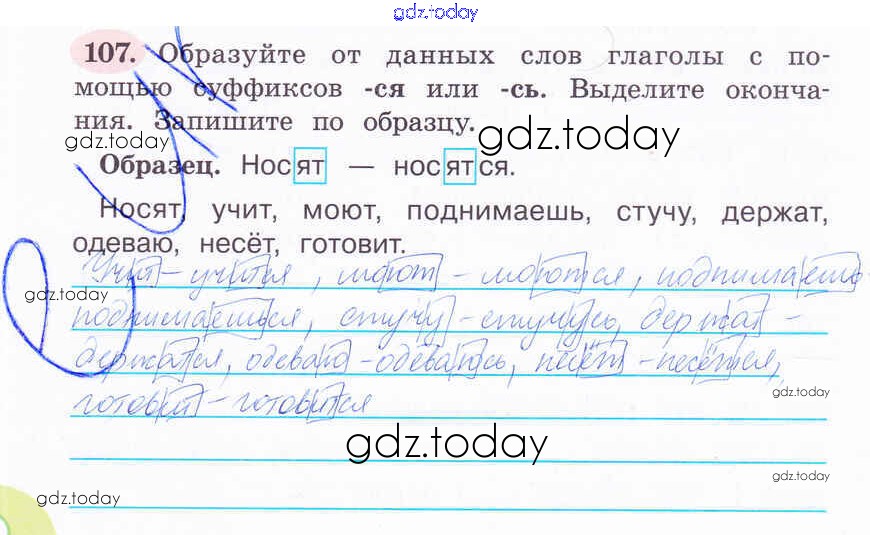 gdz.today
107. Образуйте от данных слов глаголы с по-
мощью суффиксов -ся или -сь. Выделите оконча-
ния. Запишите по образцу.
gdz.today
gdz.today
Образец. Носят — носятся.
Носят, учит, моют, поднимаешь, стучу, держат,
одеваю, несёт, готовит.
Учит - учится, моют - моются, поднимаешь-
gdz.today
поднимаешься, стучу - стучусь, держат -
держатся, одеваю - одеваюсь, несёт - несётся,
gdz.today
готовит - готовится
gdz.today
gdz.today
gdz.today